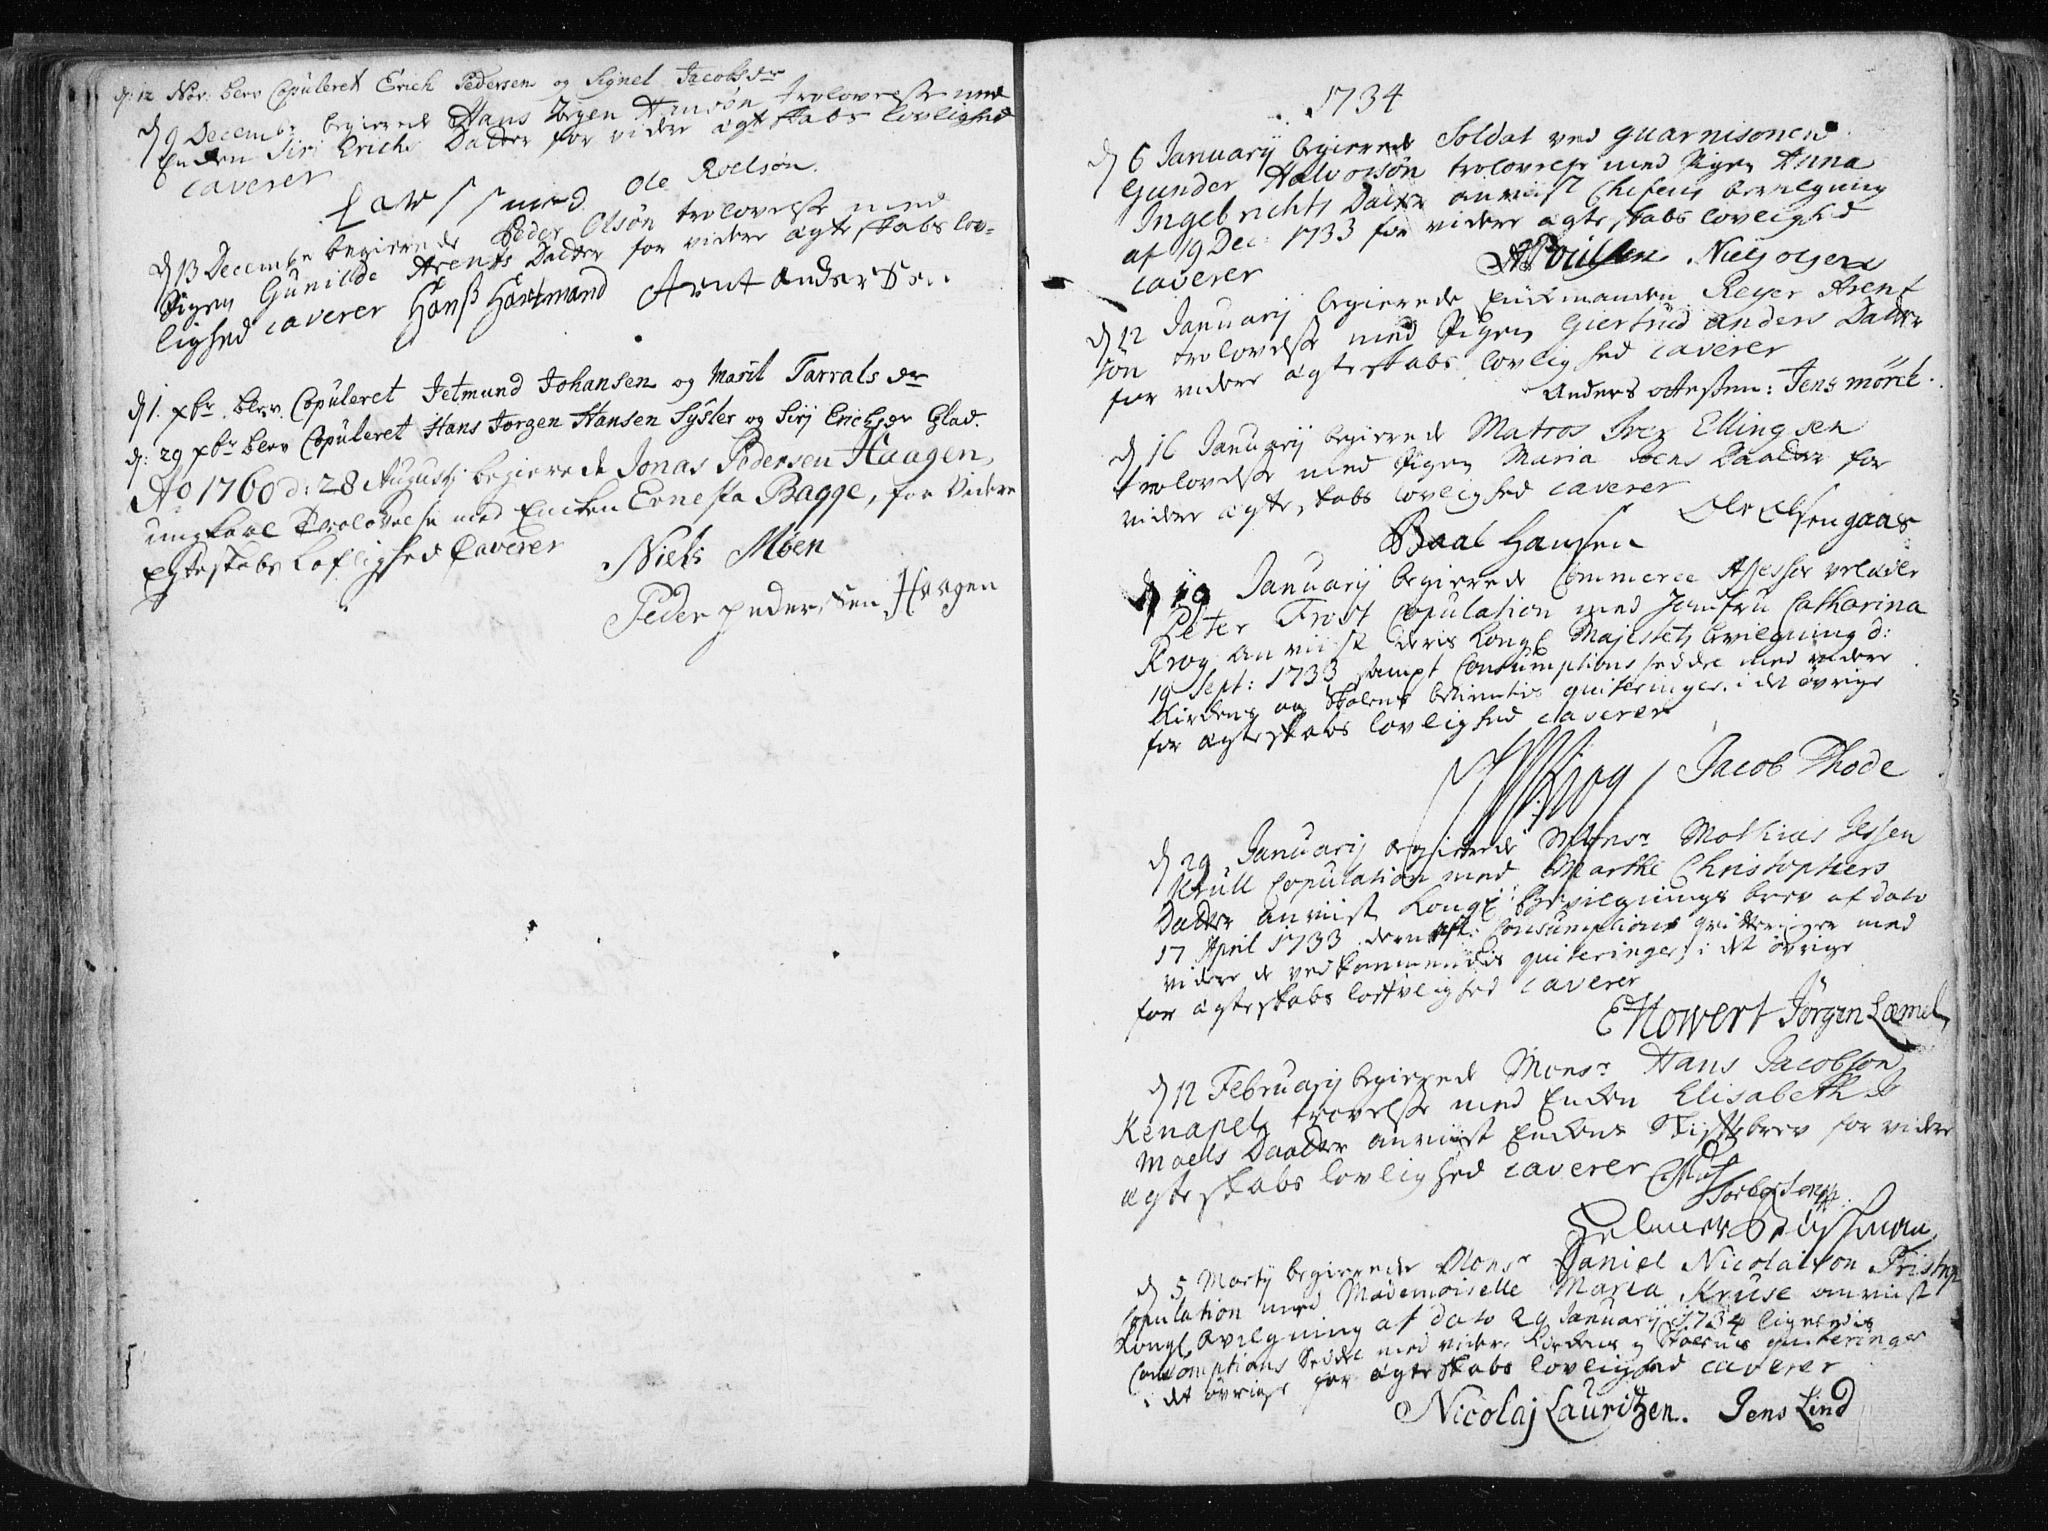 d: 12 Nov: blev Copuleret Erich Pedersen og Signel Jacobsdr
d 9 Decembr begierede Hans Jørgen Hansøn trolovelse med
Enken Siri Erichs Datter for videre ægteskabs lovlighed
caverer
Ole Roelsøn.
d 13 Decembr begierede Peder Olsøn trolovelse med
Pigen Gunilde Arents Datter for videre ægteskabs lov-
lighed caverer Hanß Hartmand Arent andersen
d 1. xbr. blev Copuleret Jetmund Johansen og Marit Tarralsdr
d: 29 xbr blev Copuleret Hans Jørgen Hansen Sysler og Sirj Erichsdr Glad.
Ao 1760 d: 28 Augustj begierede Jonas Pedersen Haagen,
ungkarl Trolovelse med Enken Ernesta Bagge, for Videre
Egteskabs Lovlighed Caverer
Niels Möen
Peder pedersen Haagen
1734
d 6 Januarij begierede Soldat ved guarnisonen
Gunder Halvorsøn trolovelse med Pigen Anna
Ingebrichts Datter anviist Chefens bevilgning
af 19 Dec: 1733 for videre ægteskabs lovlighed
caverer
APoulsen Niels olsen
d 12 Januarij begierede Enkemanden Reyer Arent
søn trolovelse med Pigen Giertrud Anders Datter
for videre ægteskabs lovlighed caverer
Anders Jens mørck.
d 16 Januarij begierede Matros Iver Ellingsen
trolovelse med Pigen Maria Joens Daatter for
videre ægteskabs lovlighed caverer
Baal Hansen Ole Olsen gaas
d 19 Januarij begierede Commerce Assessor velædle
Peter Frost Copulation med Jomfru Catharina
Krog anviist deris Kongl Majestets bevilgning d:
19 Sept: 1733 sampt Consumptions sedde med videre
Kirkens og Skolens betientis quiteringer, i det øvrige
for ægteskabs lovlighed caverer
Krog Jacob Thode
d 29 Januarij begierede Monsr Mathias Jessen
Krull Copulation med Marthe Christophers
Datter anviist Kongl: Bevilgnings brev af dato
17 April 1733 dernest: Consumptions qvitteringer med
videre de vedkommendis quiteringer, i det øvrige
for ægteskabs lovlighed caverer
EHowert Jörgen Læmel
d 12 Februarij begierede Monsr Hans Jacobson
Kenapel trovelse med Enken Elisabeth
Moels Daatter anviist Enkens Skiftebrev for videre
ægteskabs lovlighed caverer
d 5 Martij begierede Monsr Daniel Nicolaison Tristrup
Copulation med Mademoiselle Maria Kruse anviist
Kongl bevilgning af dato 29 Januarij 1734 ligeledis
Consumptions Seddel med videre Kirkens og Skolens quiteringer
i det øvrige for ægteskabs lovlighed caverer
Nicolaj Lauritzen. Jens Lind